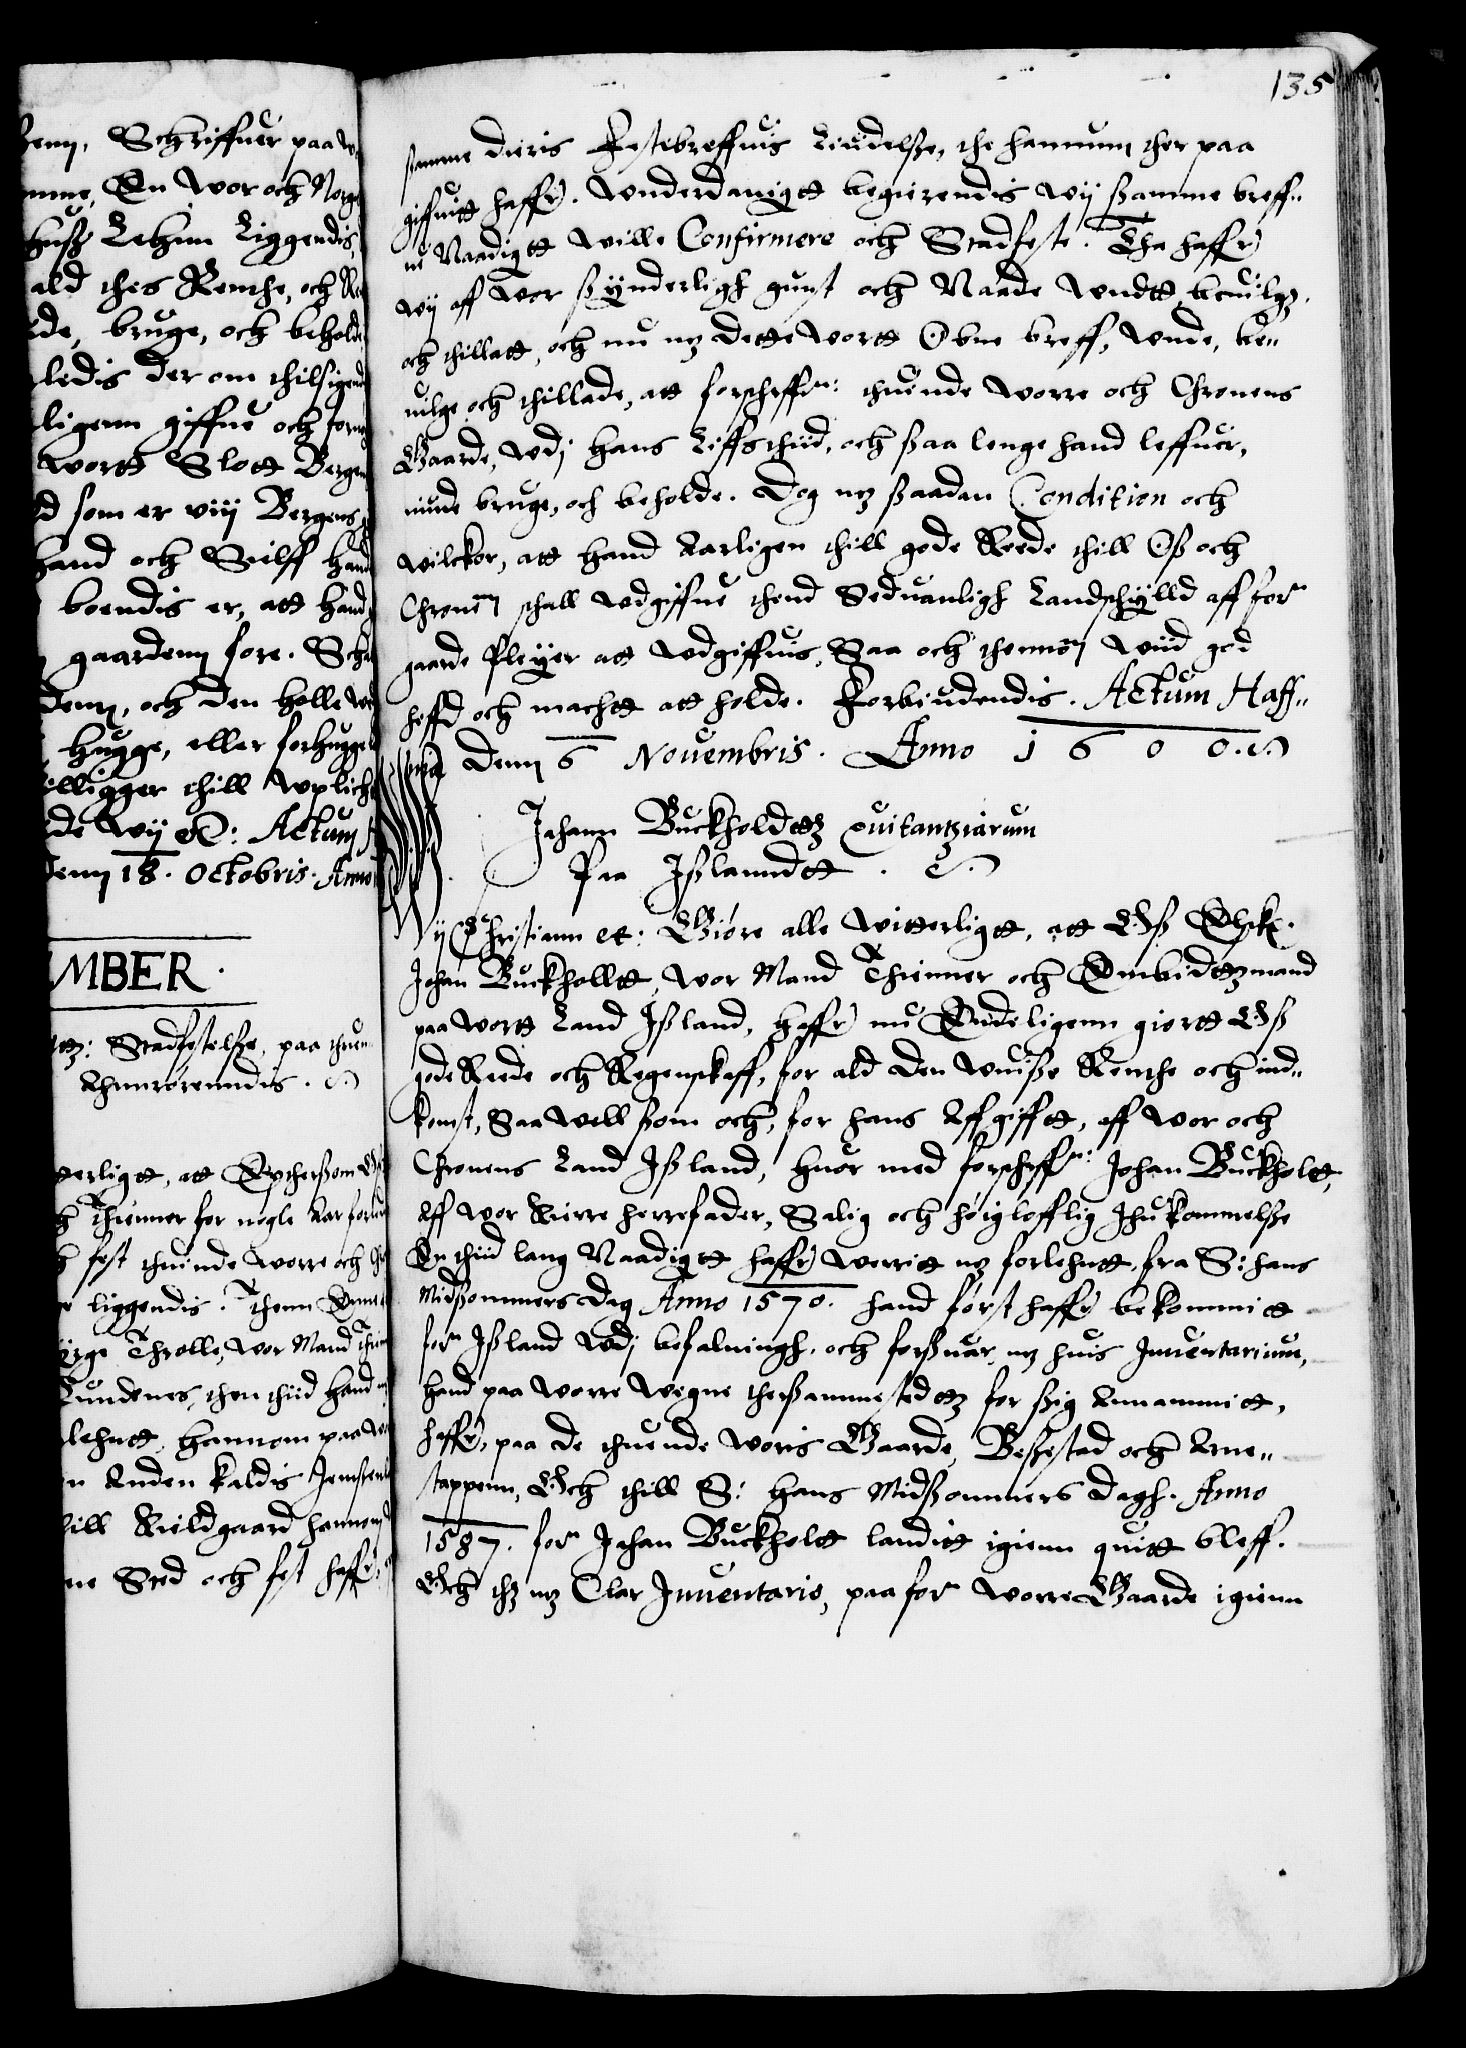 135
denn, Schriffuer paa
mme, En wor och Norg
huß Lehnn Liggendis,
ald thes Renthe, och
de, bruge, och behold
ledis der om thilsigend
ligenn giffue och
wortt Slott Bergen
d som er viij Bergens
hand och Selff hand
boendis er, att hand
gaardenn fore.
denn, och den holle
hugge, eller forhugge
lligger thill Wplicht
de Wij etc: Actum
denn 18. Octobris. Anno
MBER.
Stadfestelße, paa thuen
Ahnrörenndis.
tterligtt, att Epthersom
Thienner for nogle Aar
fest thuinde worre och
liggendis. Thenn
ge Throlle, Wor Mand
Lundenes, then thiid hand
lehntt, hannom paa
n Anden kaldis
till Kieldgaard hannom
ne Sted och fest haffr
samme dieris Festebreffuis Liudelße, the hannum ther paa
giffuitt haffr. Wnderdanigtt begierendis wij ßamme breff-
ue Naadigtt wille Confirmere och Stadfeste. Tha haffr
wij aff Wor ßynderligh gunst och Naade Wndtt beuilgz,
och thillatt, och nu mz dette wortt Obne breff, Wnde, be-
uilge och thillade, att forschreffne: thuende worre och Chronens
Gaarde, Wdj hans Liffs thiid, och ßaa lenge hand leffuer,
niude bruge, och beholde. Dog mz ßaadan Condition och
wilckor, att hand Aarligen thill gode Rede thill Oß och
Chronen schall Wdgiffue thend Seduanligh Landschylld aff for:ne
gaarde Pleyer att Wdgiffuis, Saa och thennom Wiid god
heffd och machtt att holde. Forbiudendis. Actum Haff-
niæ denn 6 Nouembris. Anno 1600.
Johann Buckholdtz Quitantziarum
Paa Ißlanndtt.
Wij Christiann etc: Giöre alle witterligtt, att Oß Elske.
Johan Buckholltt, Wor Mand Thienner och Embidttzmand
paa wortt Land Ißland, haffr nu Endeligenn giortt Oß
gode Rede och Regenskaff, for ald den Wuiße Renthe och ind-
komst, Saa well ßom och, for hans Affgifftt, aff Wor och
Chronens Land Ißland, huor med forschreffne: Johan Buckholtt,
Aff Wor Kierre herrefader, Salig och höiglofflig Ihukommelße
En thiid lang Naadigtt haffr werritt mz forlehntt, fra S: hans
Midßommers dag Anno 1570. hand först haffr bekommitt
for:ne Ißland Wdj befalningh, och forßuar, mz huis Inuentarium,
hand paa worre wegne therßammestedttz for ßig Annammitt,
haffr, paa de thuende woris Gaarde, Beßestad och Arne-
stappenn, Och thill S: hans Midßommers dagh. Anno
1587. for:ne Johan Buckholtt landitt igienn quitt bleff.
Och thz mz Clar Inuentario, paa for:ne worre Gaarde igienn